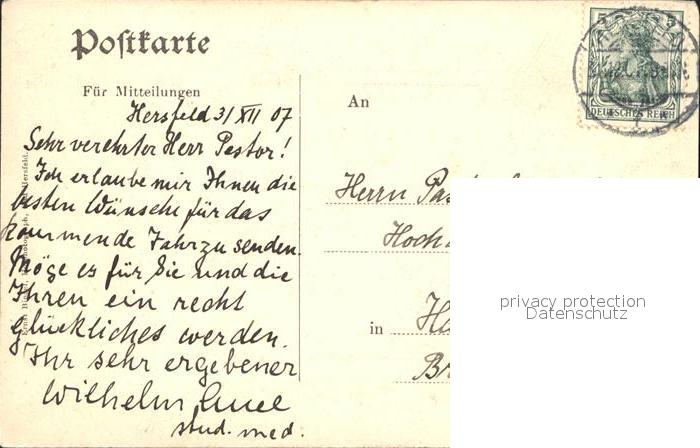 Postkarte
Für Mitteilungen
Hersfeld 31 XII 07
Sehr verehrter Herr Pastor!
Ich erlaube mir Ihnen die
besten Wünsche für das
kommende Jahr zu senden.
Möge es für Sie und die
Ihren ein recht
glückliches werden.
Ihr sehr ergebener
Wilhelm
stud. med.
An
Herrn
in
5 5
DEUTSCHES REICH
privacy protection
Datenschutz